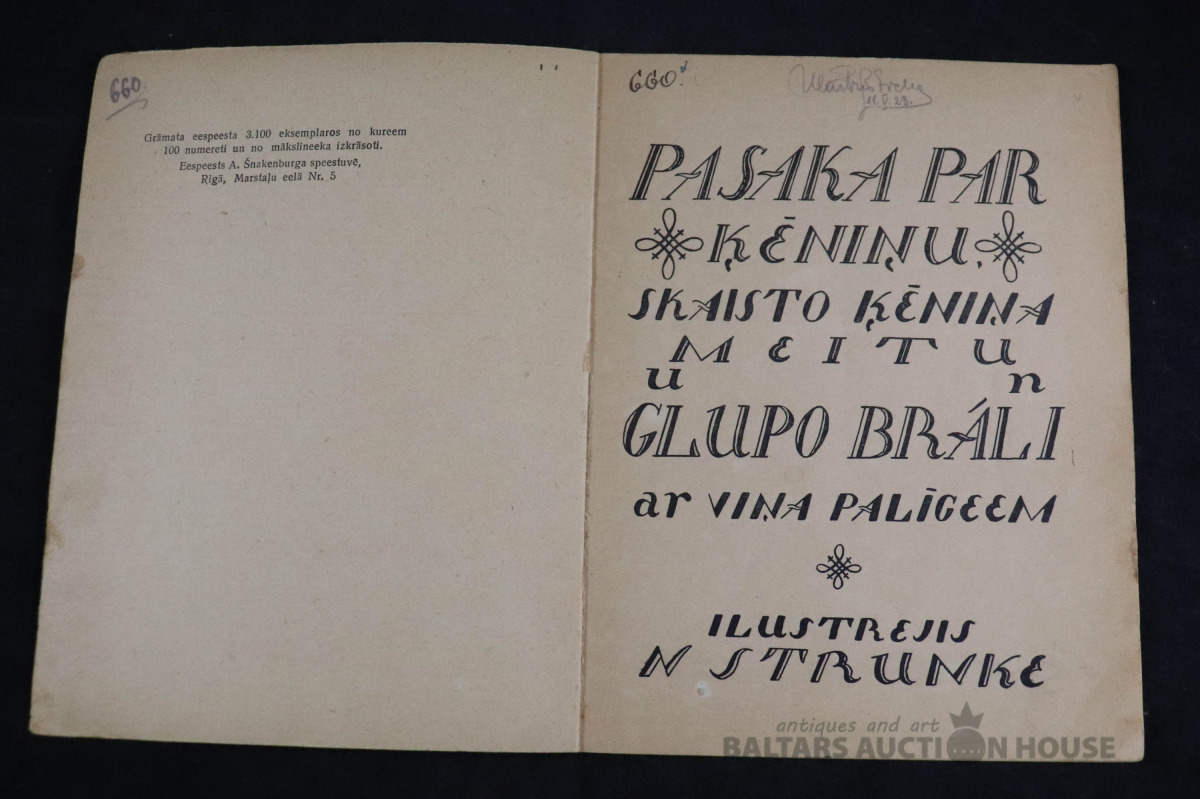 660.
Grāmata eespeesta 3.100 eksemplaros no kureem
100 numereti un no mākslineeka izkrāsoti.
Eespeests A. Šnakenburga speestuvē,
Rīgā, Marstaļu eelā Nr. 5
660.
11.V.23.
PASAKA PAR
ĶĒNIŅU,
SKAISTO ĶĒNIŅA
MEITU
un
GLUPO BRÁLI
ar VIŅA PALĪGEEM
ILUSTREJIS
N STRUNKE
antiques and art
BALTARS AUCTION HOUSE